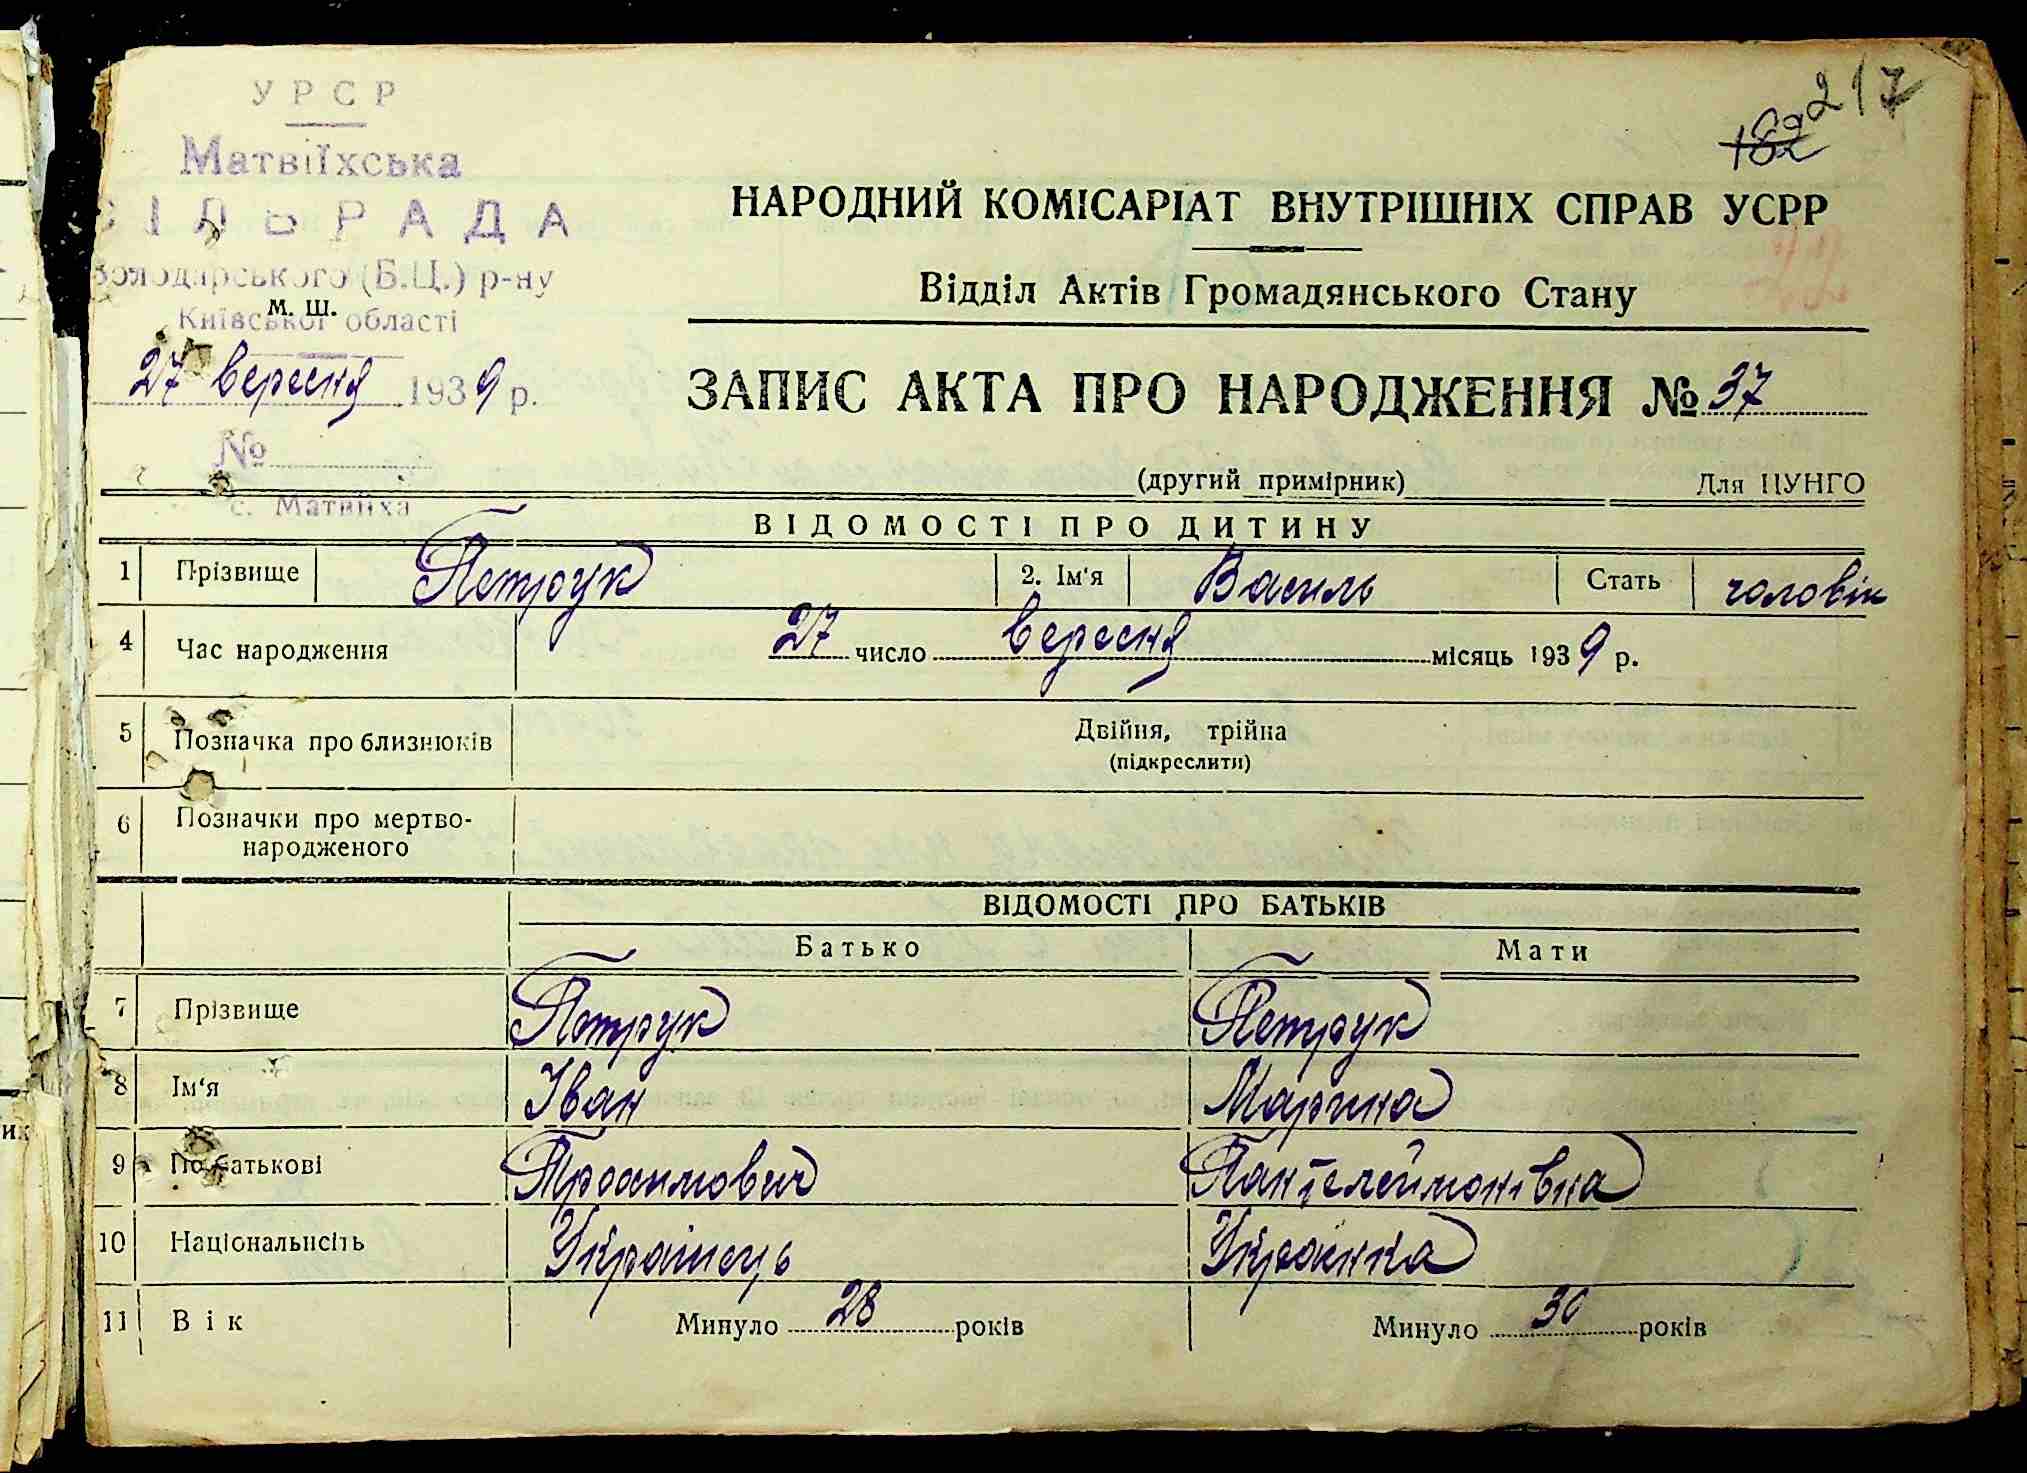 217
УРСР
Матвіїхська
СІЛЬРАДА
Володарського (Б.Ц.) р-ну
М. Ш.
Київської області
27 вересня 1939 р.
№
с. Матвіїха
НАРОДНИЙ КОМІСАРІАТ ВНУТРІШНІХ СПРАВ УСРР
Відділ Актів Громадянського Стану
ЗАПИС АКТА ПРО НАРОДЖЕННЯ № 37
(другий примірник) Для ЦУНГО
ВІДОМОСТІ ПРО ДИТИНУ
1 Прізвище Петрук 2. Ім'я Василь Стать чоловік
4 Час народження 27 число вересня місяць 1939 р.
5 Позначка про близнюків Двійня, трійна
(підкреслити)
6 Позначки про мертво-
народженого
ВІДОМОСТІ ПРО БАТЬКІВ
Батько Мати
7 Прізвище Петрук Петрук
8 Ім'я Іван Марина
9 По батькові Трохимович Пантелеймонівна
10 Національність Українець Українка
11 Вік Минуло 28 років Минуло 30 років